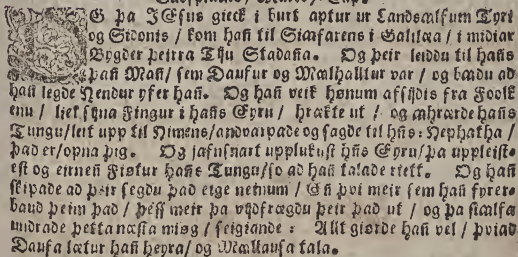 OG þa JEsus gieck i burt aptur ur Landsælfum Tyri
og Sidonis / kom hañ til Siafarens i Galilæa / i midiar
Bygder þeirra Tiju Stadaña. Og þeir leiddu til hañs
þañ Mañ / sem Daufur og Mælhalltur var / og bædu ad
hañ legde Hendur yfer hañ. Og hañ veik hønum affijdis fra Foolk
enu / liet sijna Fingur i hañs Eyru / hrækte ut / og æhrærde hañs
Tungu/leit upp til Himens/andvarpade og sagde til hñs: Hephatha /
þad er/opna þig. Og jafnsnart upplukust hñs Eyru/þa uppleist-
est og eirneñ Fiøtur hañs Tungu/so ad hañ talade riett. Og hañ
skipade ad þeir segdu þad eige neinum / Eñ þvi meir sem hañ fyrer-
baud þeim þad / þess meir þa vijdfrægdu þeir þad ut / og þa siælfa
undrade þetta næsta miøg / seigiande: Allt giørde hañ vel / þviad
Daufa lætur hañ heyra/ og Mællausa tala.